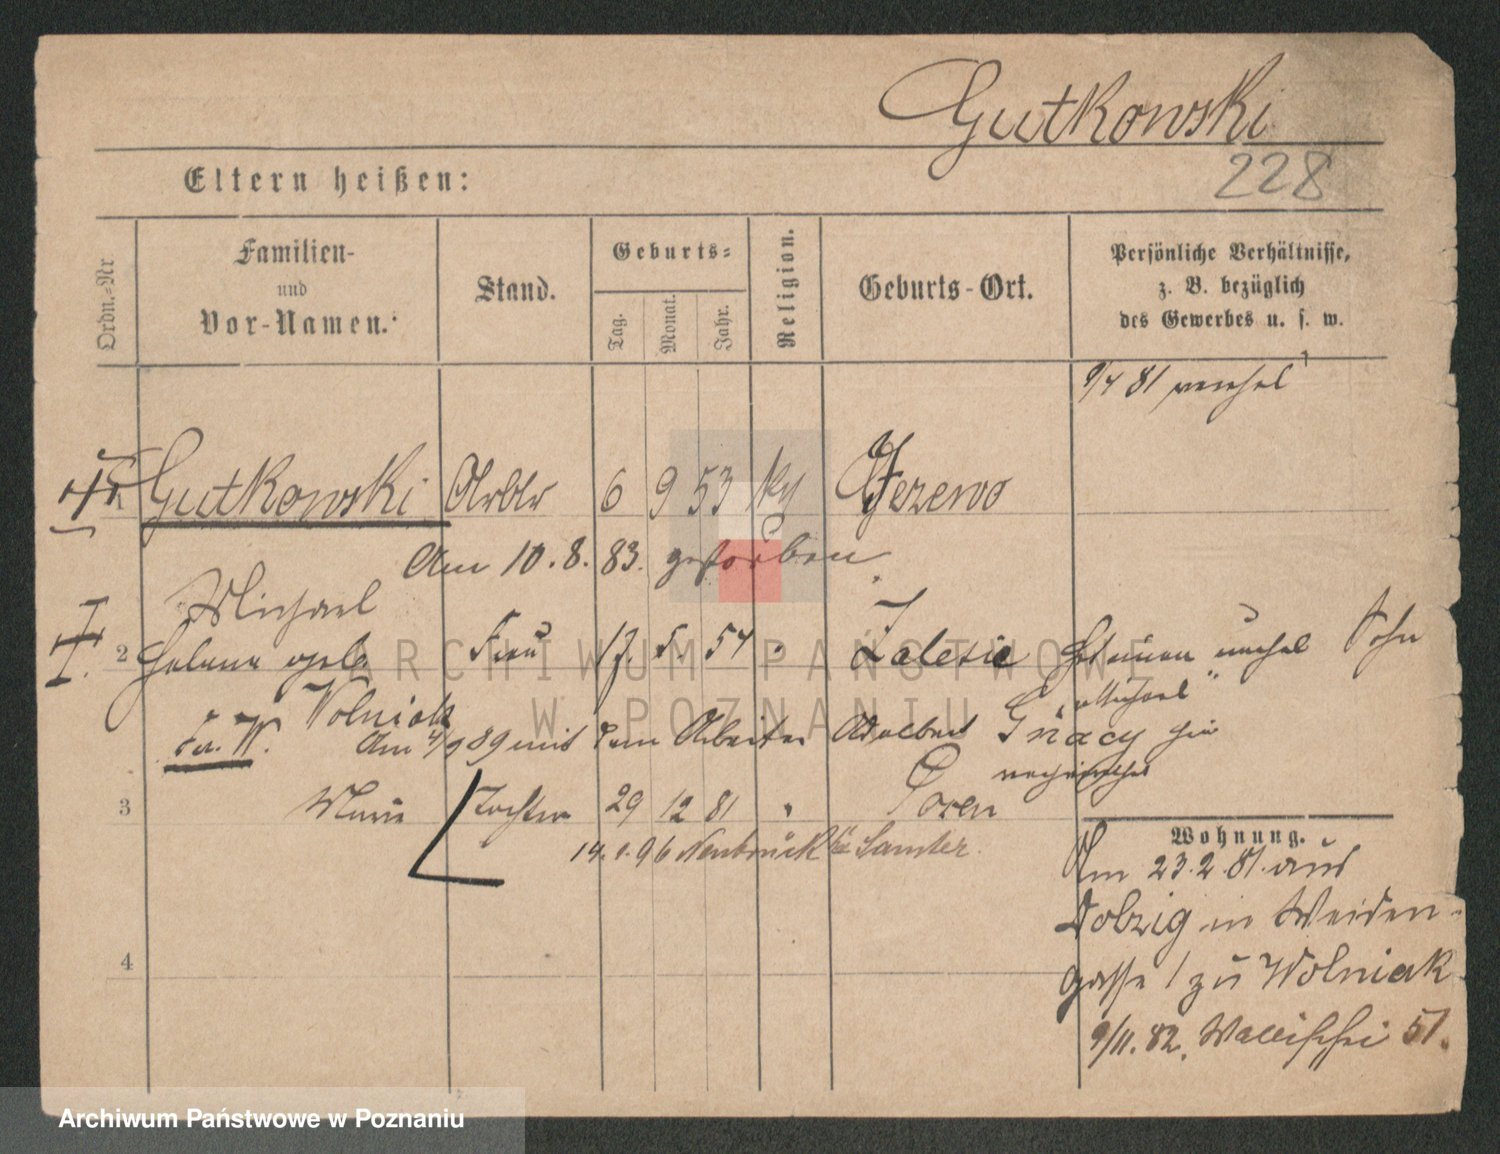 Gutkowski
228
Eltern heißen:
Ordn.-Nr
Familien-
und
Vor-Namen.
Stand.
Geburts-
Tag.
Monat.
Jahr.
Religion.
Geburts-Ort.
Persönliche Verhältnisse,
z. B. bezüglich
des Gewerbes u. s. w.
9/4 81
1 Gutkowski Arbtr 6 9 53 Jezewo
Am 10. 8. 83. gestorben.
Michael
2 Helene geb Frau 17. 5. 54 " Zalesie unehel Sohn
Wolniak
"Michael"
Fr. W. Am 4/9 89 mit dem Arbeiter Adalbert hier
3 Marie Tochter 29 12 81 " Posen
14. 1. 96 Neubrück bei Samter.
Wohnung.
Am 23. 2. 81. aus
Dolzig in Weiden-
gasse 1 zu Wolniak
9/11. 82. Wallischei 51.
4
ARCHIWUM PAŃSTWOWE
W POZNANIU
Archiwum Państwowe w Poznaniu